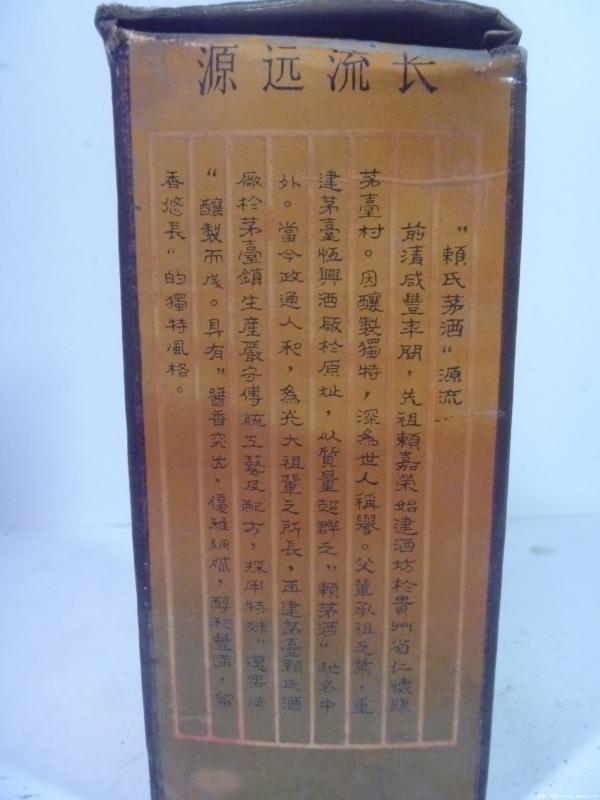 源远流长
”賴氏茅酒“源流..
前清咸豐年間，先祖賴嘉榮始建酒坊於貴州省仁懷縣
茅臺村。因釀製獨特，深為世人稱譽。父輩承祖之業，重
建茅臺恆興酒厰於原址，以質量超群之”賴茅酒“馳名中
外。當今政通人和，為光大祖輩之所長，再建茅臺賴氏酒
厰於茅臺鎮生産嚴守傳統工藝及配方，採用特殊”復窖法
“釀製而成。具有”醬香突出，優雅細膩，醇和豐滿，留
香悠長“的獨特風格。